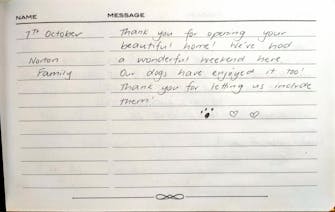 NAME MESSAGE
7th October Thank you for opening your
beautiful home! We've had
Norton a wonderful weekend here
Family Our dogs have enjoyed it too!
Thank you for letting us include
them!